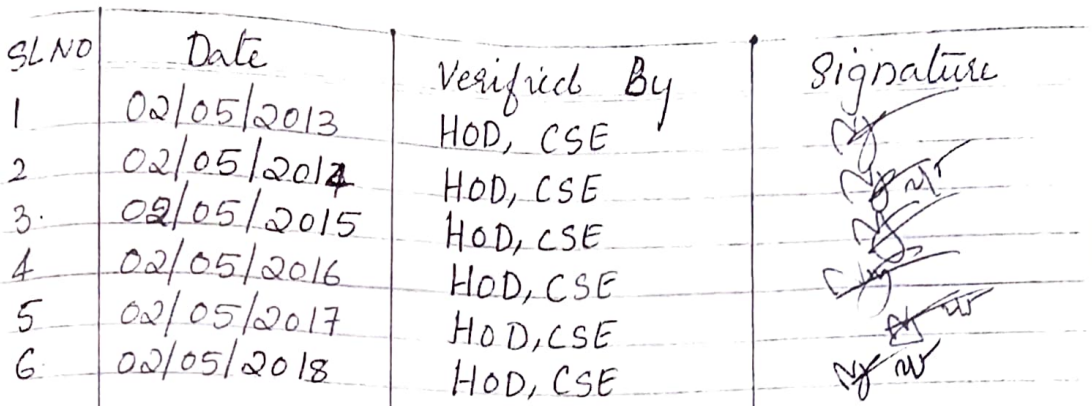 SLNO Date Verified By Signature
1 02/05/2013 HOD, CSE
2 02/05/2014 HOD, CSE
3. 02/05/2015 HOD, CSE
4 02/05/2016 HOD, CSE
5 02/05/2017 HOD, CSE
6. 02/05/2018 HOD, CSE